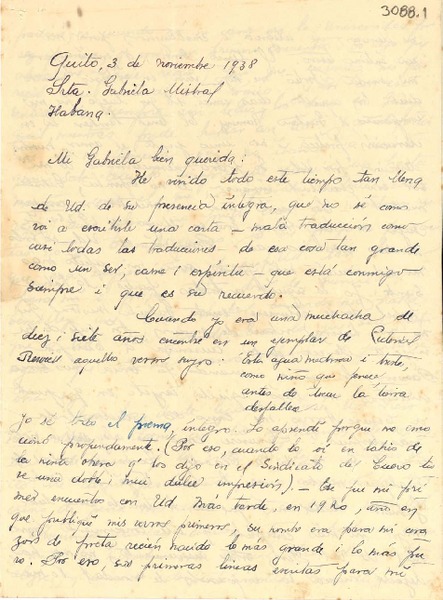 3088.1
Quito, 3 de noviembre 1938
Srta. Gabriela Mistral
Habana.
Mi Gabriela bien querida:
He vivido todo este tiempo tan llena
de Ud. de su presencia íntegra, que no sé como
voi a escribirle una carta - mala traducción como
casi todas las traducciones - de esa cosa tan grande
como un ser, carne i espíritu - que está conmigo
siempre i que es su recuerdo.
Cuando yo era una muchacha de
diez i siete años encontré en un ejemplar de
aquellos versos suyos: Esta agua medrosa i triste
como niño que padece
antes de tocar la tierra
desfallece
Yo sé todo el poema, íntegro. Lo aprendí porque me emo
cionó profundamente. (Por eso, cuando lo oí en labios de
la niña obrera q' los dijo en el Sindicato del Cuero tu
ve una doble i mui dulce impresión). - Ese fué mi pri
mer encuentro con Ud. Más tarde, en 1920, año en
que publiqué mis versos primeros, su nombre era para mi cora
zón de poeta recién nacido lo más grande i lo más pu
ro. Por eso, sus primeras líneas escritas para mí